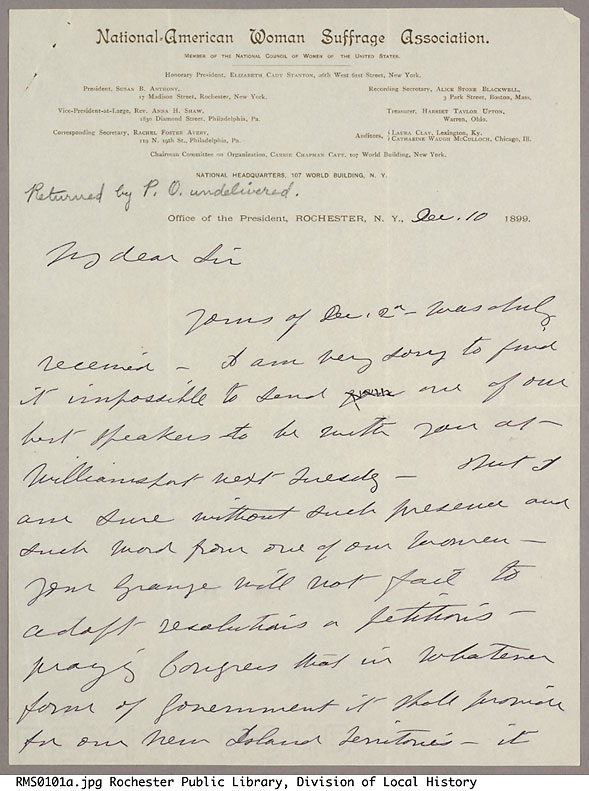 National-American Woman Suffrage Association.
MEMBER OF THE NATIONAL COUNCIL OF WOMEN OF THE UNITED STATES.
Honorary President, ELIZABETH CADY STANTON, 26th West 61st Street, New York.
President, SUSAN B. ANTHONY,
17 Madison Street, Rochester, New York.
Vice-President-at-Large, REV. ANNA H. SHAW,
1830 Diamond Street, Philadelphia, Pa.
Corresponding Secretary, RACHEL FOSTER AVERY,
119 N. 19th St., Philadelphia, Pa.
Recording Secretary, ALICE STONE BLACKWELL,
3 Park Street, Boston, Mass.
Treasurer, HARRIET TAYLOR UPTON,
Warren, Ohio.
Auditors, { LAURA CLAY, Lexington, Ky.
CATHARINE WAUGH MCCULLOCH, Chicago, Ill.
Chairman Committee on Organization, CARRIE CHAPMAN CATT, 107 World Building, New York.
NATIONAL HEADQUARTERS, 107 WORLD BUILDING, N. Y.
Returned by P. O. undelivered.
Office of the President, ROCHESTER, N. Y., Dec. 10 1899.
My dear Sir
Yours of Dec. 2d - was duly
received - I am very sorry to find
it impossible to send one of our
best speakers to be with you at -
Williamsport next Tuesday - But I
am sure without such presence and
such word from one of our women -
your Grange will not fail to
adopt resolutions & petitions -
praying Congress that in whatever
form of government it shall provide
for our new Island Territories - it
RMS0101a.jpg Rochester Public Library, Division of Local History